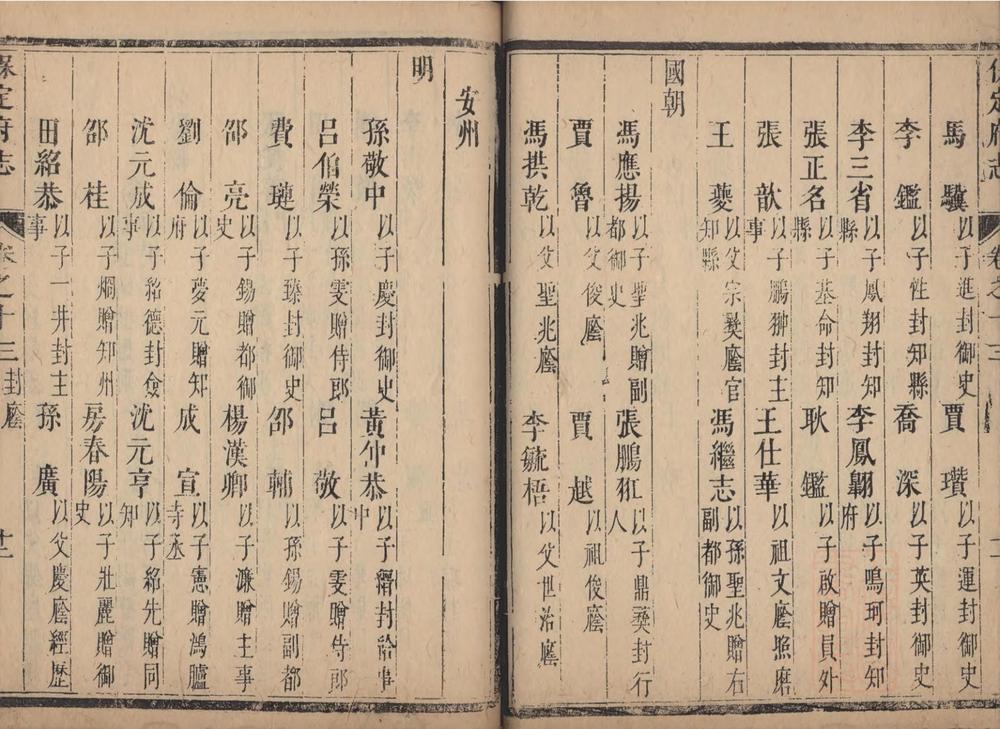 保定府志 卷之十三
馬驥 以子進封御史 賈瓚 以子運封御史
李鑑 以子性封知縣 喬深 以子英封御史
李三省 以子鳳翔封知縣 李鳳翺 以子鳴珂封知府
張正名 以子基命封知縣 耿鑑 以子啟贈員外
張歆 以子鵬翀封主事 王仕華 以祖文廕照磨
王夔 以父宗彝廕官知縣 馮繼志 以孫聖兆贈右副都御史
國朝
馮應揚 以子聖兆贈副都御史 張鵬 以子鼎彝封行人
賈魯 以父俊廕 賈越 以祖俊廕
馮拱乾 以父聖兆廕 李毓梧 以父世治廕
安州
明
孫敬中 以子慶封御史 黃仲恭 以子封給事中
呂伯榮 以孫雯贈侍郎 呂敬 以子雯贈侍郎
費璉 以子瑧封御史 邵輔 以孫錫贈副都
邵亮 以子錫贈都御史 楊漢卿 以子濂贈主事
劉倫 以子夢元贈知府 成宣 以子憲贈鴻臚寺丞
沈元成 以子紹德封僉事 沈元亨 以子紹先贈同知
邵桂 以子烱贈知州 房春陽 以子壯麗贈御史
田紹恭 以子一井封主事 孫廣 以父慶廕經歷
保定府志 卷之十三 封廕